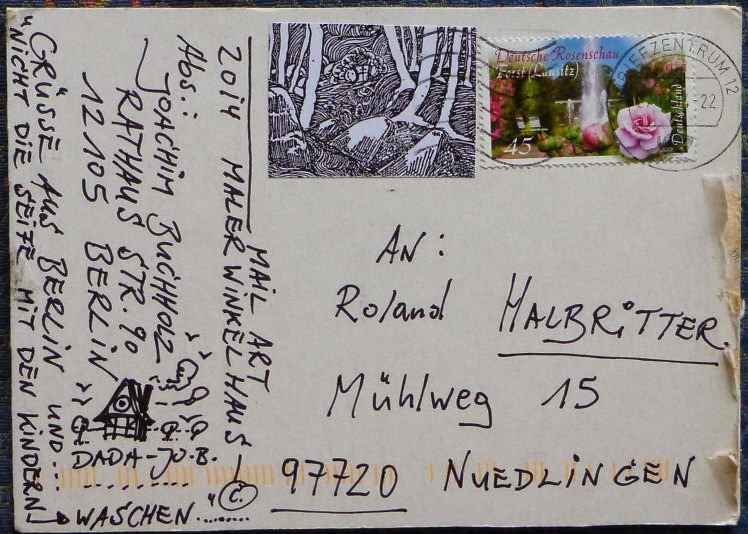 2014 MAIL ART
MALERWINKELHAUS
Abs.:
JOACHIM BUCHHOLZ
RATHAUS STR. 90
12105 BERLIN
DADA-JO.B.
"GRÜSSE AUS BERLIN UND...
NICHT DIE SEIFE MIT DEN KINDERN
WASCHEN......." ©
Deutsche Rosenschau
Forst (Lausitz)
45
Deutschland
BRIEFZENTRUM 12
22
AN:
Roland HALBRITTER.
Mühlweg 15
97720 NUEDLINGEN